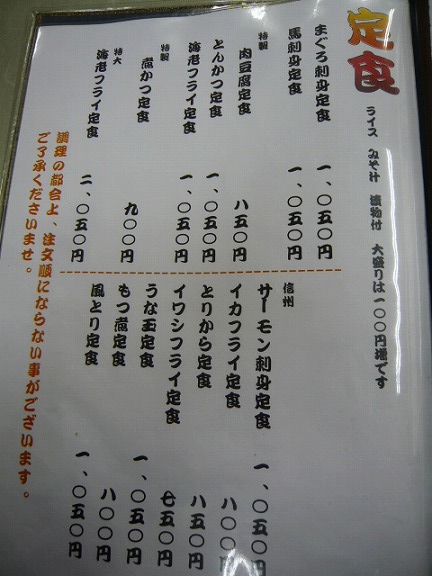 定食
ライス みそ汁 漬物付 大盛りは一〇〇円増です
まぐろ刺身定食 一、〇五〇円
馬刺身定食 一、〇五〇円
特製
肉豆腐定食 八五〇円
とんかつ定食 一、〇五〇円
海老フライ定食 一、〇五〇円
特製
煮かつ定食 九〇〇円
特大
海老フライ定食 二、〇五〇円
信州
サーモン刺身定食 一、〇五〇円
イカフライ定食 八〇〇円
とりから定食 八五〇円
イワシフライ定食 七五〇円
うな玉定食 一、〇五〇円
もつ煮定食 八〇〇円
風とり定食 一、〇五〇円
調理の都合上、注文順にならない事がございます。
ご了承くださいませ。